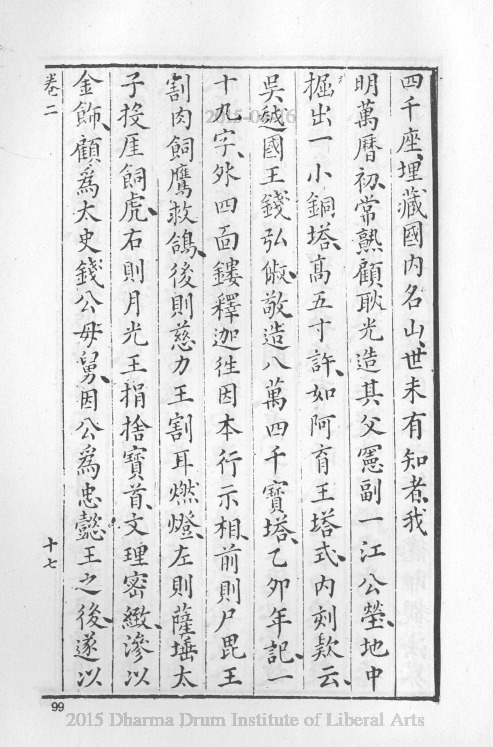 四千座、埋藏國內名山、世未有知者、我
明萬曆初、常熟顧耿光造其父憲副一江公塋、地中
掘出一小銅塔、高五寸許、如阿育王塔式、內刻欵云、
吳越國王錢弘俶敬造八萬四千寶塔、乙卯年記、一
十九字、外四面鏤釋迦徃因本行示相、前則尸毘王
割肉飼鷹救鴿、後則慈力王割耳燃燈、左則薩埵太
子投厓飼虎、右則月光王捐捨寶首、文理密緻、滲以
金飾、顧爲太史錢公母舅、因公為忠懿王之後、遂以
卷二
十七
99
2015-06-16
2015 Dharma Drum Institute of Liberal Arts